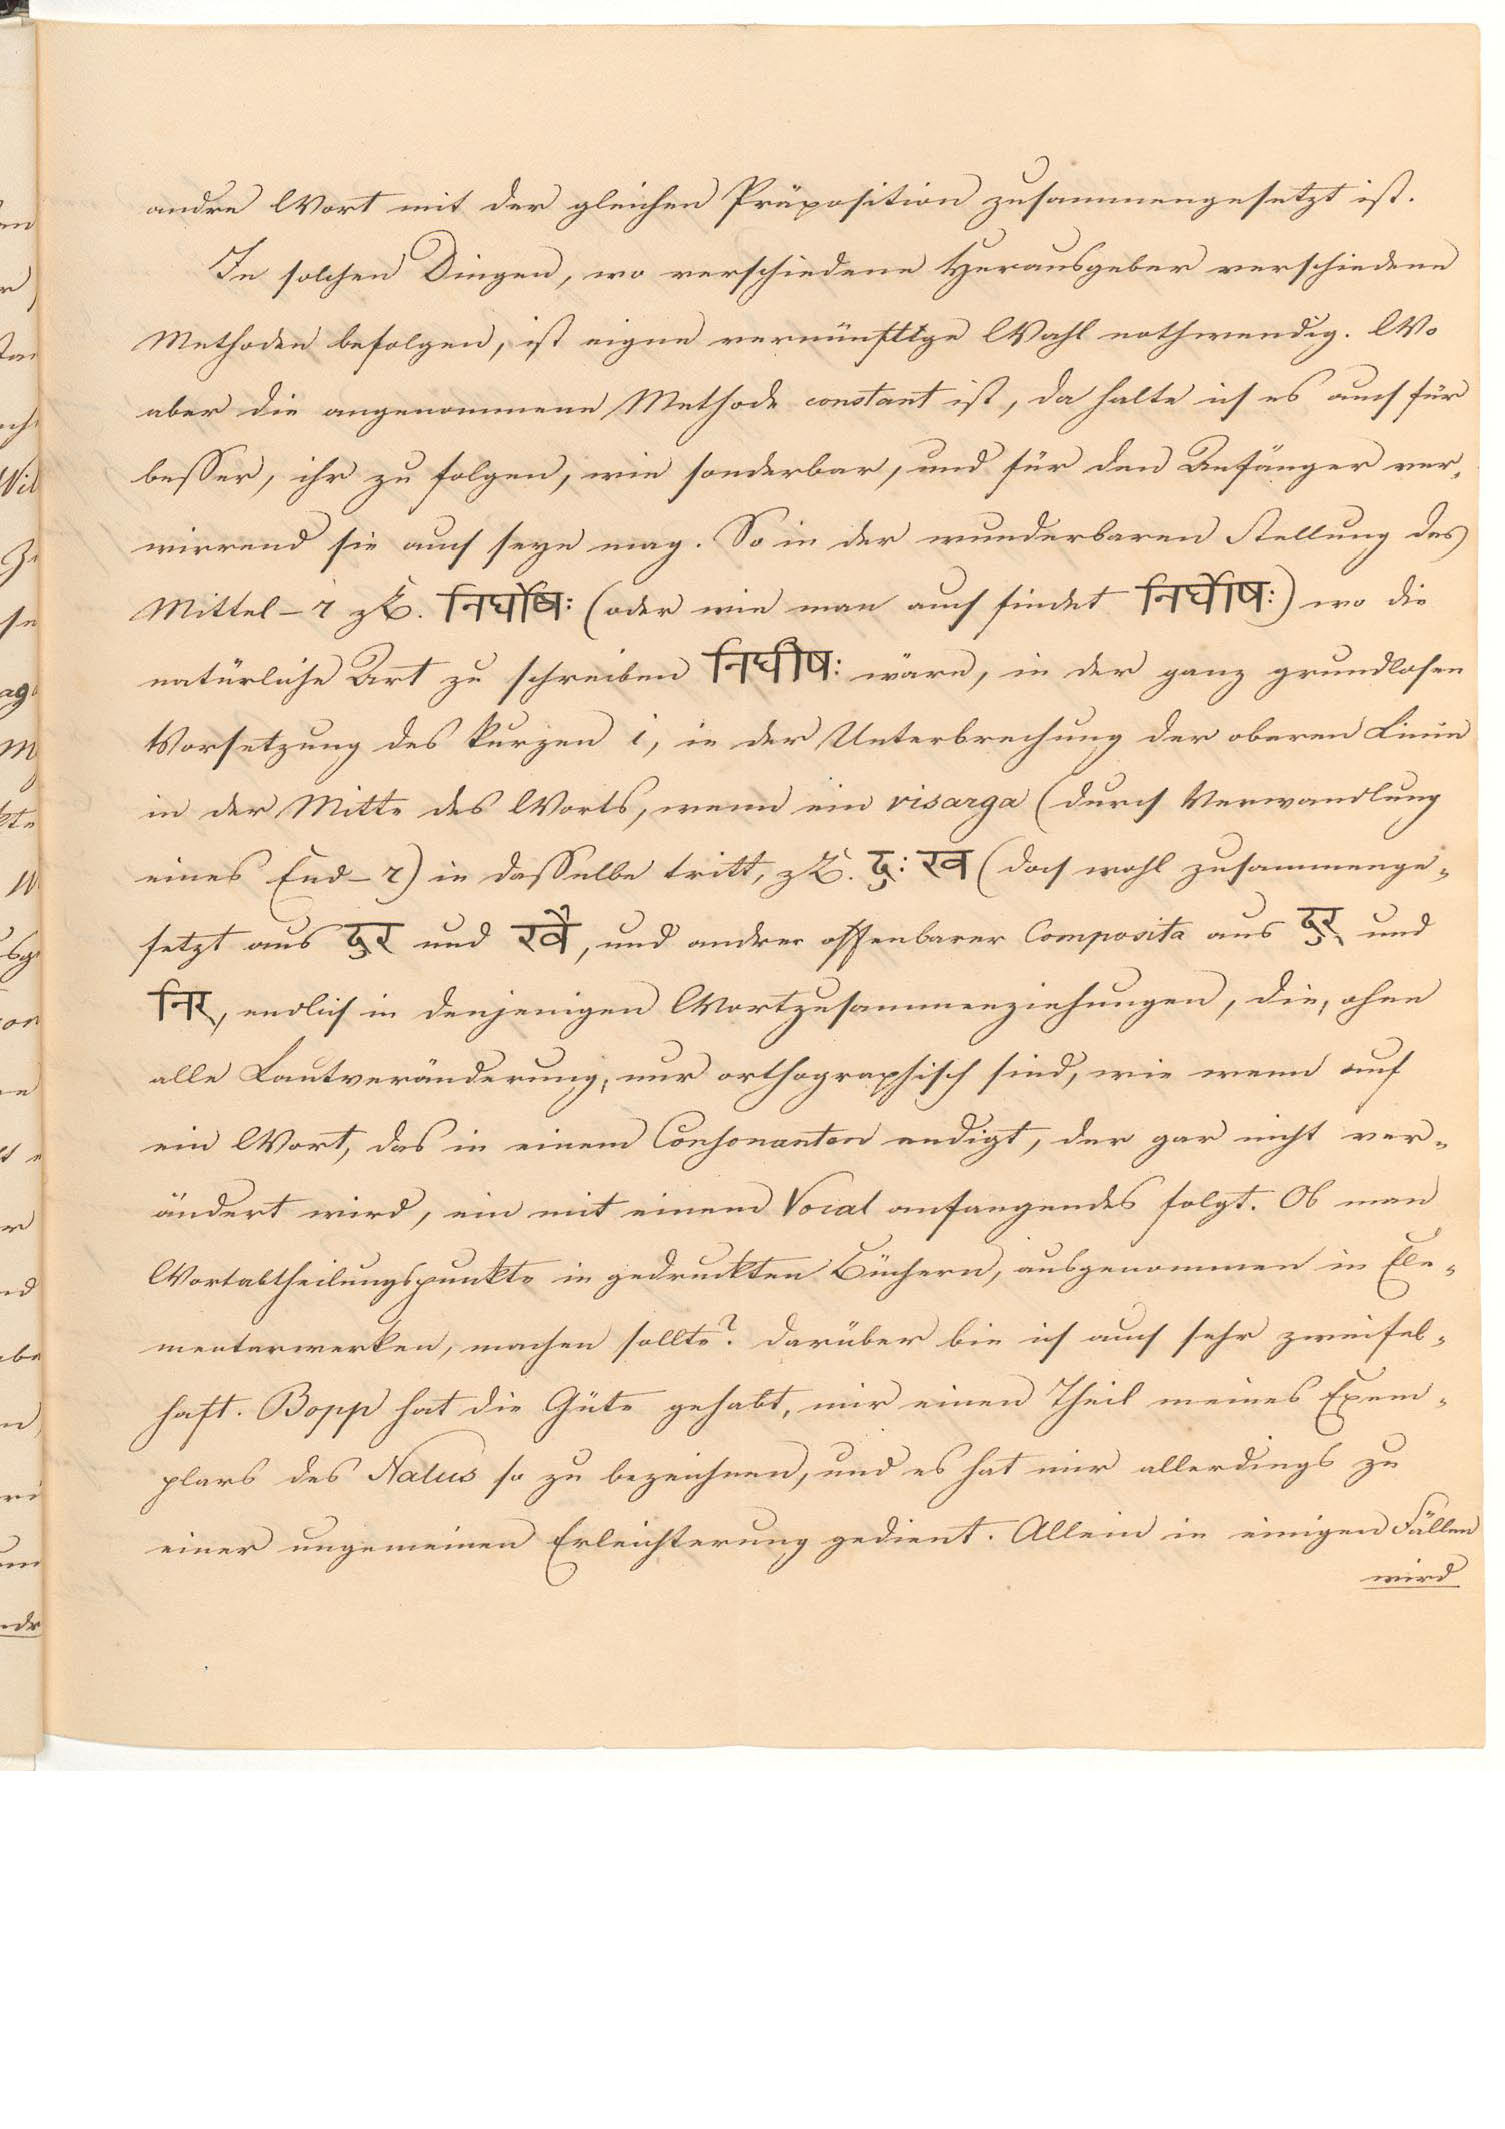 andre Wort mit der gleichen Präposition zusammengesetzt ist.
In solchen Dingen, wo verschiedene Herausgeber verschiedene
Methoden befolgen, ist eigne vernünftige Wahl nothwendig. Wo
aber die angenommene Methode constant ist, da halte ich es auch für
besser, ihr zu folgen, wie sonderbar, und für den Anfänger ver-
wirrend sie auch seyn mag. So in der wunderbaren Stellung des
Mittel-r z.B. निर्घोषः (oder wie man auch findet निर्घोषः) wo die
natürliche Art zu schreiben निर्घोषः wäre, in der ganz grundlosen
Vorsetzung des kurzen i, in der Unterbrechung der oberen Linie
in der Mitte des Worts, wenn ein visarga (durch Verwandlung
eines End-r) in dasselbe tritt, z.B. दुः ख (doch wohl zusammenge-
setzt aus दुर und खै, und andrer offenbarer Composita aus दुर् und
निर्, endlich in denjenigen Wortzusammenziehungen, die, ohne
alle Lautveränderung, nur orthographisch sind, wie wenn auf
ein Wort, das in einem Consonanten endigt, der gar nicht ver-
ändert wird, ein mit einem Vocal anfangendes folgt. Ob man
Wortabtheilungspunkte in gedruckten Büchern, ausgenommen in Ele-
mentarwerken, machen sollte? darüber bin ich auch sehr zweifel-
haft. Bopp hat die Güte gehabt, mir einen Theil meines Exem-
plars des Nalus so zu bezeichnen, und es hat mir allerdings zu
einer ungemeinen Erleichterung gedient. Allein in einigen Fällen
wird